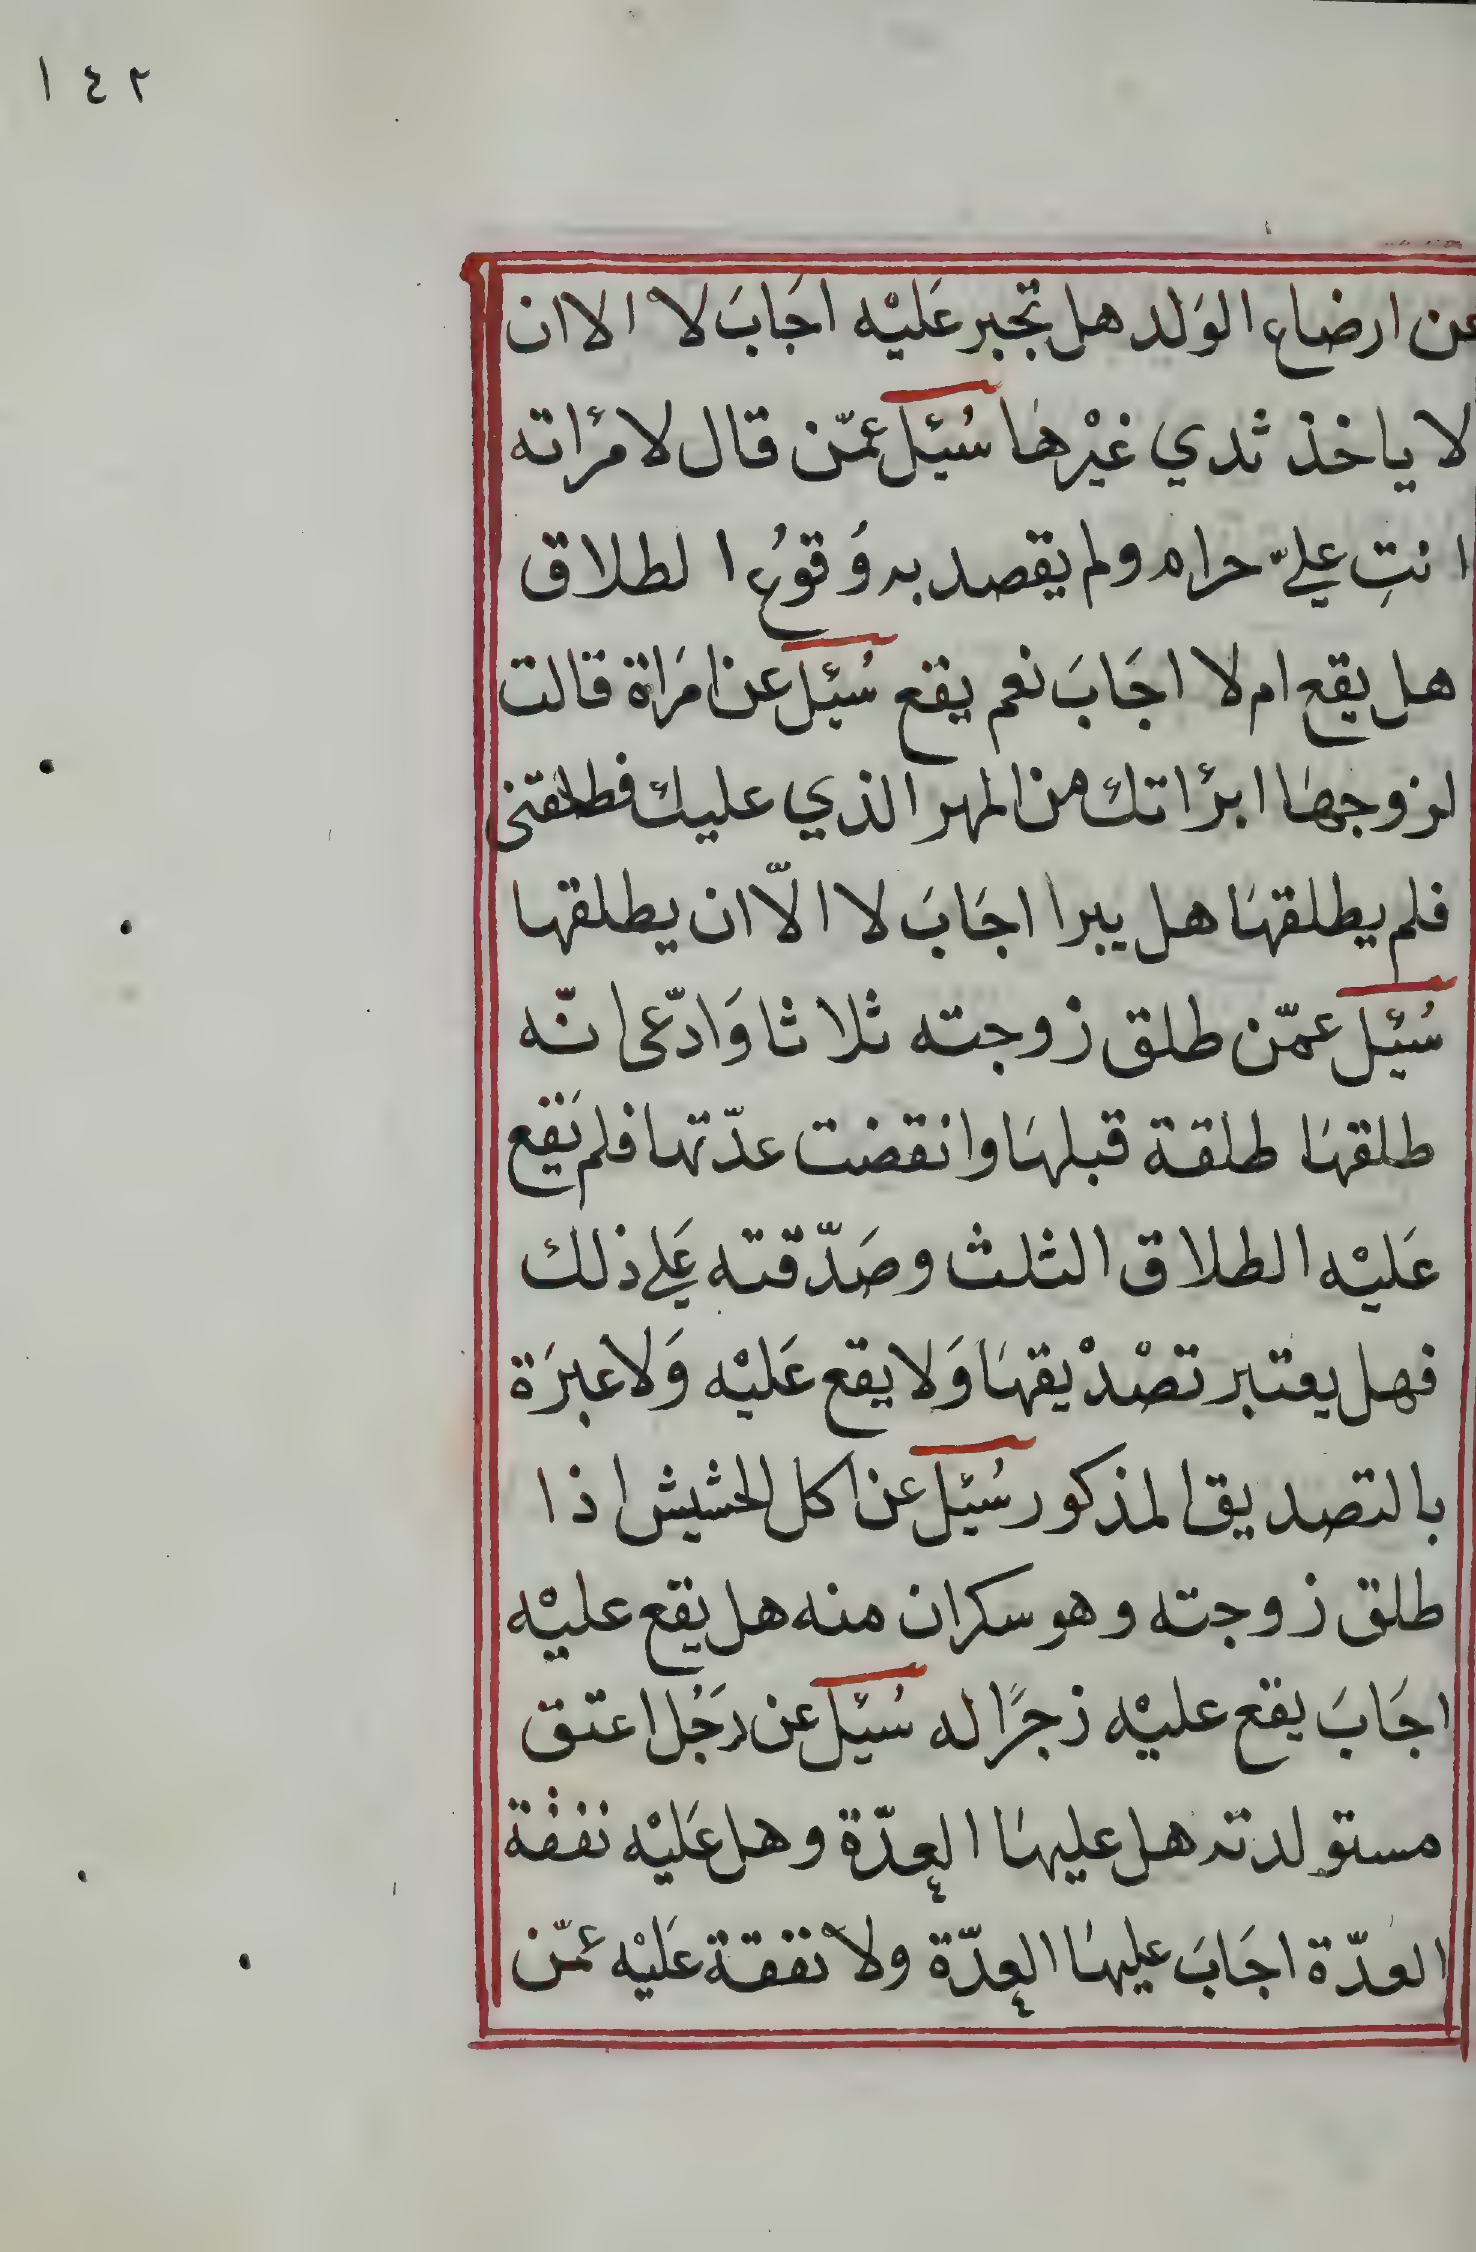 ١٤٢
عن ارضاع الوَلد هل تجبر عَليْه اجَابَ لا الا ان
لا ياخذ ثدي غيْرها سُئِل عمّن قال لامرٔاته
انتِ عليّ حرام ولم يقصد به وُقوُع الطلاق
هل يقع ام لا اجَابَ نعم يقع سُئِل عن امَراة قالت
لزوجها ابرٔاتك من المهر الذي عليك فطلقتنى
فلم يطلقهَا هل يبرا اجَابَ لا الّا ان يطلقها
سُئِل عمّن طلق زوجته ثلاثا وَادّعى انّه
طلقهَا طلقة قبلهَا وانقضت عدّتها فلم يَقع
عَليْه الطلاق الثلث وصَدّقته عَلى ذلك
فهل يعتبر تصْدْيقهَا وَلا يقع عَليْه وَلا عبرَة
بالتصديق المذكور سُئِل عن اكل الحشيش اذا
طلق زوجته وهو سكران منه هل يقع عليْه
اجَابَ يقع عليْه زجرًا له سُئِل عن رَجُل اعتق
مستولدته هل عليهَا العدّة وهل عَليْه نفقة
العدّة اجَابَ عليهَا العدّة ولا نفقة عَليْه عمّن